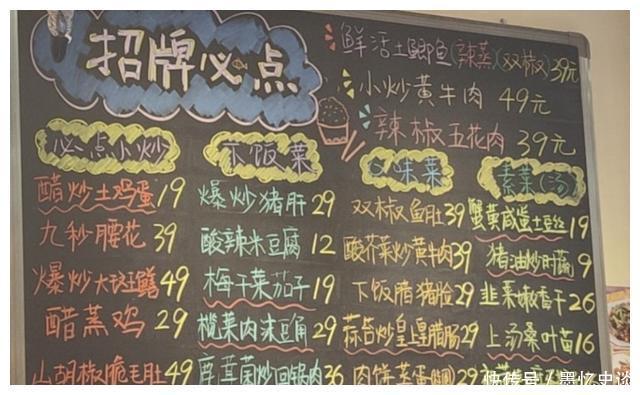 招牌必点
鲜活土鲫鱼(辣蒸)(双椒)39元
小炒黄牛肉 49元
辣椒五花肉 39元
必点小炒
醋炒土鸡蛋 19
九秒腰花 39
爆炒大斑鳝 49
醋蒸鸡 29
山胡椒脆毛肚 49
下饭菜
爆炒猪肝 29
酸辣米豆腐 12
梅干菜茄子 19
榄菜肉沫豆角 29
茸菌炒回锅肉 36
味菜
双椒鱼肚 39
酸芥菜炒黄牛肉 39
下饭腊猪脸 29
蒜苔炒皇上皇腊肠 29
肉饼蒸蛋 29
素菜(汤)
蟹黄咸蛋土豆丝 19
猪油炒时蔬 9
韭菜嫩香干 26
上汤桑叶苗 16
快传号/墨忆史谈